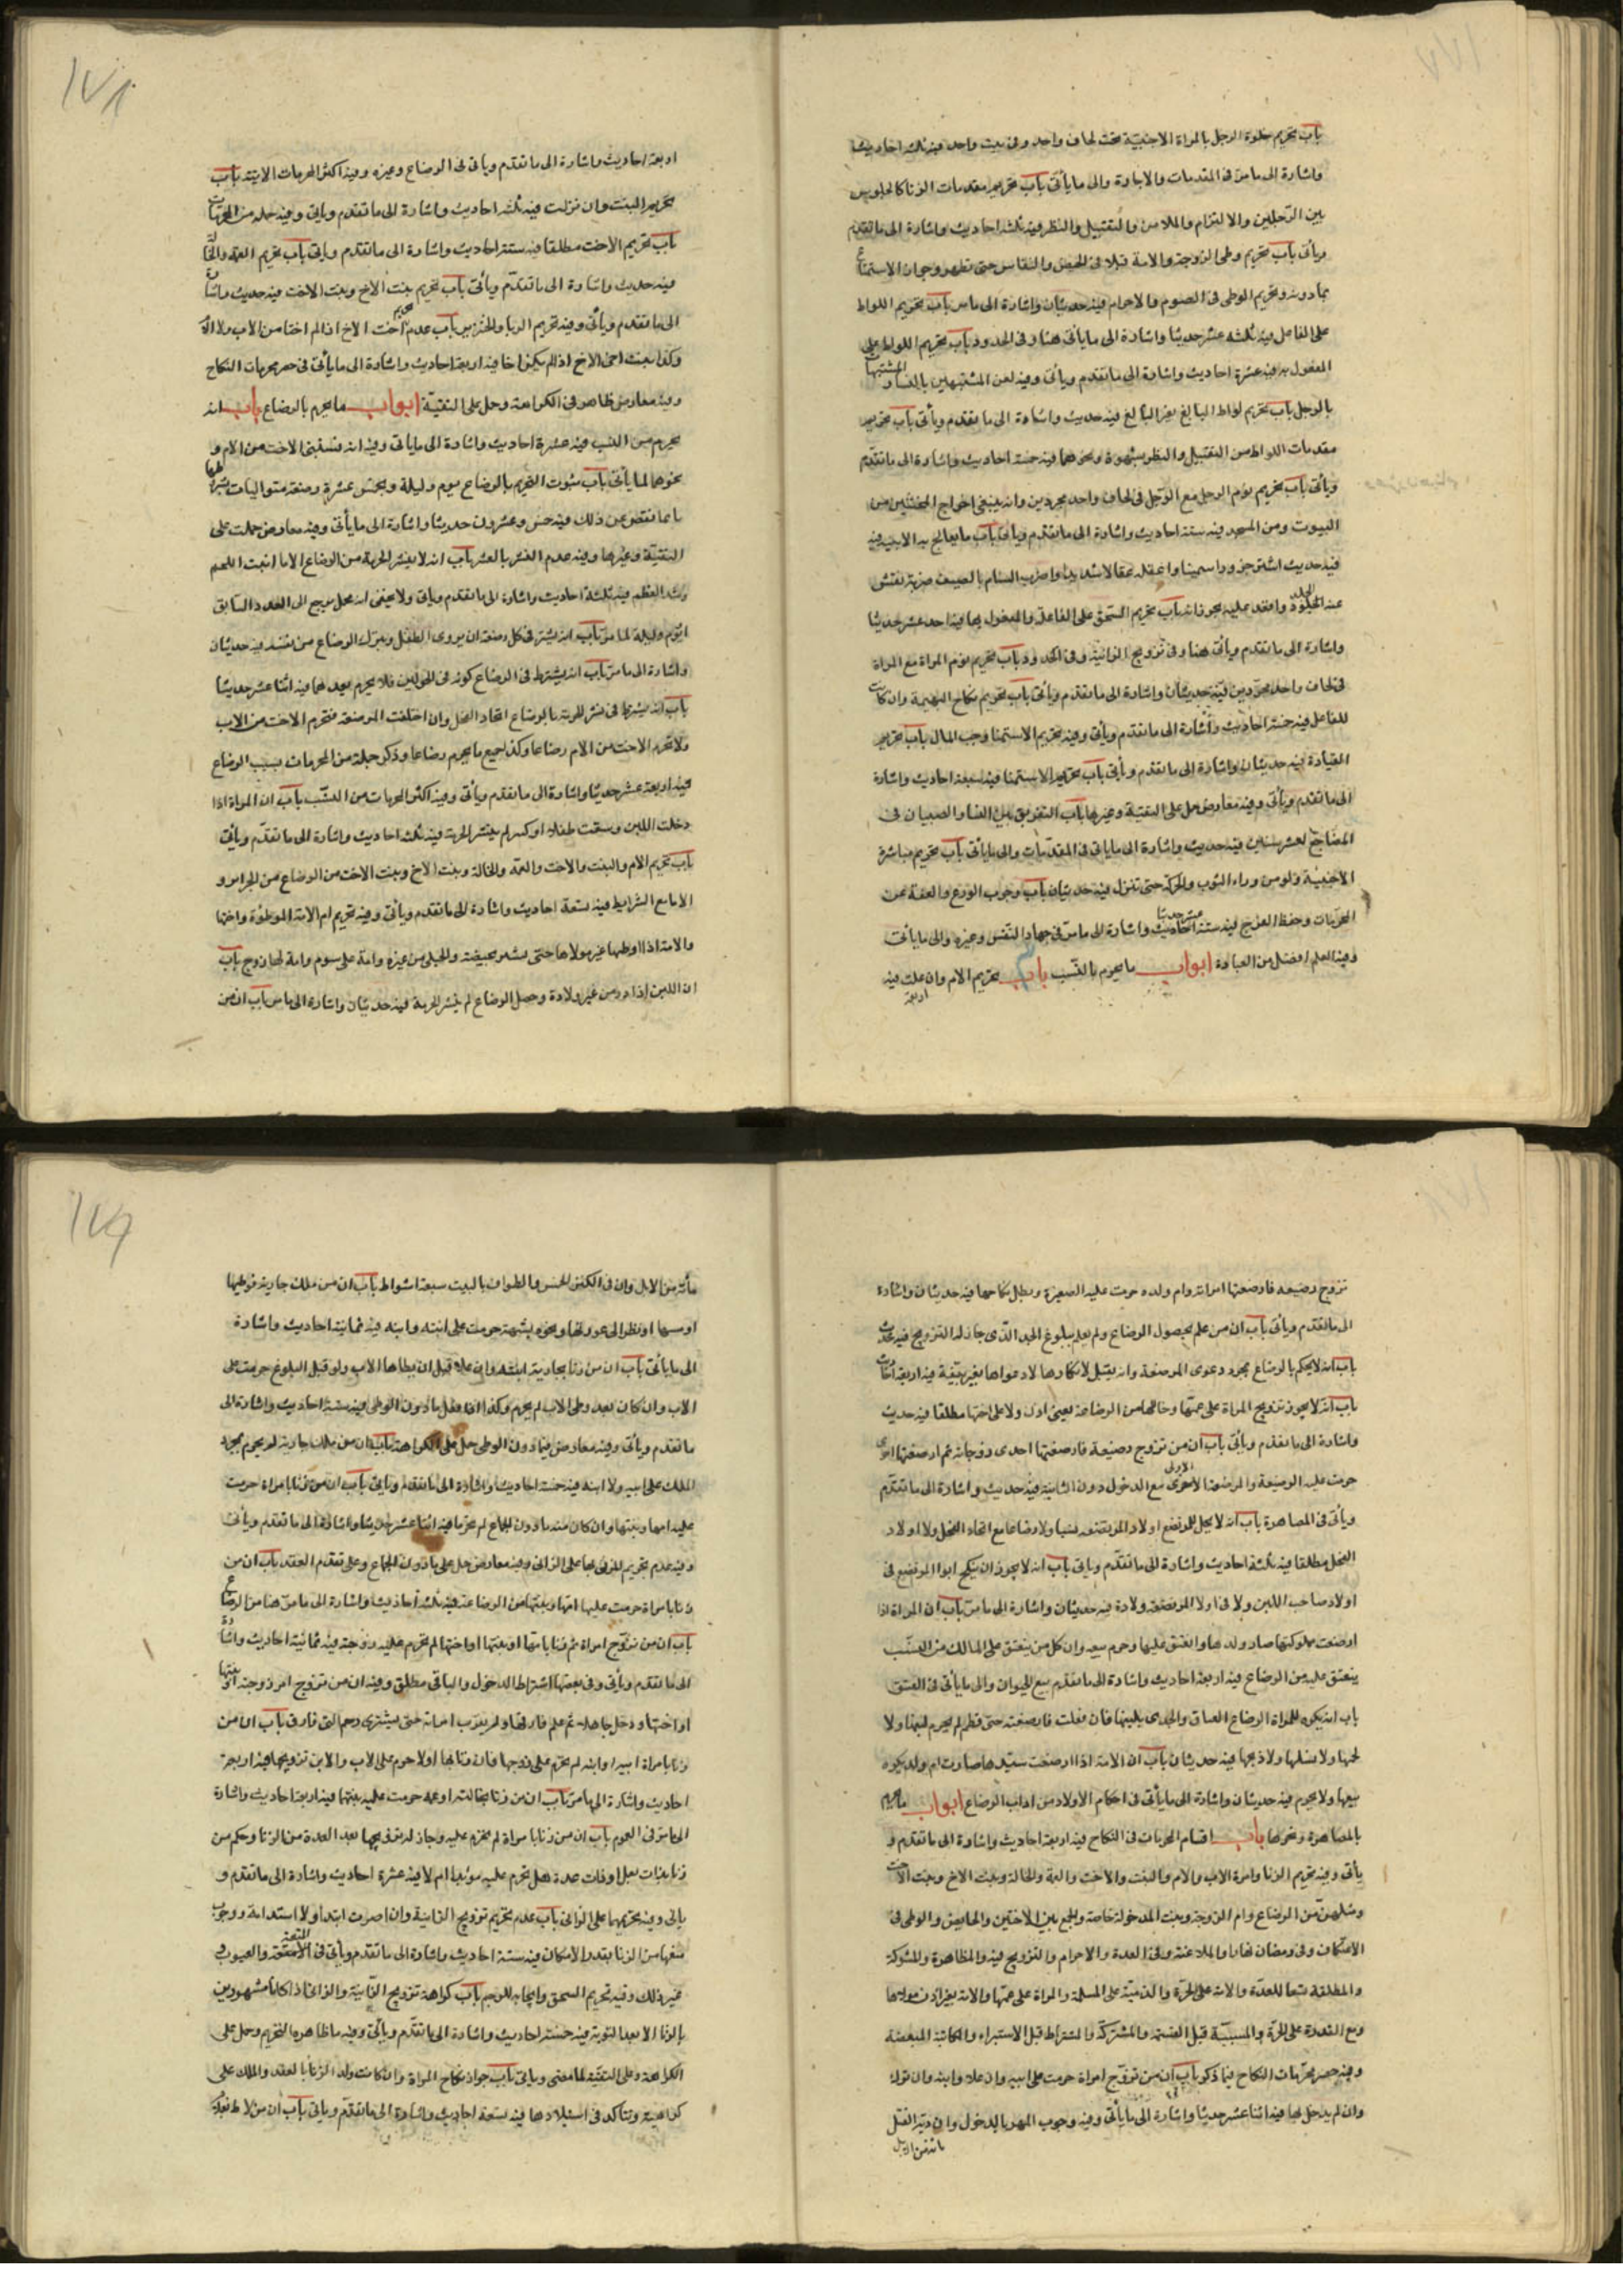 باب تحريم خلوة الرجل بالمراة الاجنبية تحت لحاف واحد وفى بيت واحد فيه ثلثه احاديث
واشارة الى ما مر فى المقدمات والاجارة والى ما يأتى باب تحريم مقدمات الزنا كالجلوس
بين الرجلين والالتزام والملامس والتقبيل والنظر فيه ثلثه احاديث واشارة الى ما تقدم
ويأتى باب تحريم وطى الزوجة والامة قبلا فى الحيض والنفاس حتى تطهر وجواز الاستمتاع
بمادونه وتحريم الوطى فى الصوم والاحرام فيه حديثان واشارة الى ما مر باب تحريم اللواط
على الفاعل فيه ثلثه عشر حديثا واشارة الى ما يأتى هنا وفى الحدود باب تحريم اللواط على
المفعول به فيه عشرة احاديث واشارة الى ما تقدم ويأتى وفيه لعن المشتبهين بالنساء والمشتبهات
بالرجل باب تحريم لواط البالغ بغير البالغ فيه حديث واشارة الى ما تقدم ويأتى باب تحريم
مقدمات اللواط من التقبيل والنظر بشهوة ونحوهما فيه خمسة احاديث واشارة الى ما تقدم
ويأتى باب تحريم نوم الرجل مع الرجل فى لحاف واحد مجردين وانه ينبغى اخراج المخنثين من
البيوت ومن المسجد فيه ستة احاديث واشارة الى ما تقدم ويأتى باب ما يعالج به الابنة فيه
فيه حديث اشتر جزورا سمينا واعقله عقالا شديدا واضرب السنام بالسيف ضربة تقشر
عنه الجلد واقعد عليه بحرارته باب تحريم السحق على الفاعلة والمفعول بها فيه احد عشر حديثا
واشارة الى ما تقدم ويأتى هنا وفى تزويج الزانية وفى الحدود باب تحريم نوم المراة مع المراة
فى لحاف واحد مجردين فيه حديثان واشارة الى ما تقدم ويأتى باب تحريم نكاح البهيمة وان كانت
للفاعل فيه خمسة احاديث واشارة الى ما تقدم ويأتى وفيه تحريم الاستمنا وجب المال باب تحريم
القيادة فيه حديثان واشارة الى ما تقدم ويأتى باب تحريم الاستمنا فيه سبعة احاديث واشارة
الى ما تقدم ويأتى وفيه معارض حمل على التقية وغيرها باب التفريق بين النساء والصبيان فى
المضاجع لعشر سنين فيه حديث واشارة الى ما ياتى فى المقدمات والى ما يأتى باب تحريم مباشرة
الاجنبية ولو من وراء الثوب والحركة حتى تنزل فيه حديثان باب وجوب الورع والعفة عن
المحرمات وحفظ الفرج فيه ستة عشر حديثا واشارة الى ما مر فى جهاد النفس وغيره والى ما يأتى
وفيه العلم افضل من العبادة ابواب ما يحرم بالنسب باب تحريم الام وان علت فيه
اربعة
١٧٨
اربعة احاديث واشارة الى ما تقدم وياتى فى الرضاع وغيره وفيه اكثر المحرمات الاتية باب
تحريم البنت وان نزلت فيه ثلثه احاديث واشارة الى ما تقدم وياتى وفيه جملة من المحرمات
باب تحريم الاخت مطلقا فيه ستة احاديث واشارة الى ما تقدم وياتى باب تحريم العمة والخالة
فيه حديث واشارة الى ما تقدم ويأتى باب تحريم بنت الاخ وبنت الاخت فيه حديث واشارة
الى ما تقدم ويأتى وفيه تحريم الربا والخنزير باب عدم تحريم اخت الاخ اذا لم اختا من الاب ولا الام
وكذا بنت اخى الاخ اذا لم يكن اخا فيه اربعة احاديث واشارة الى ما يأتى فى حصر محرمات النكاح
وفيه معارض ظاهر فى الكراهة وحمل على التقية ابواب ما يحرم بالرضاع باب انه
يحرم من النسب فيه عشرة احاديث واشارة الى ماياتى وفيه انه تستثنى الاخت من الام و
نحوها لما يأتى باب ثبوت التحريم بالرضاع يوم وليلة وبخمس عشرة رضعة متواليات بشروطها
لا بما نقص عن ذلك فيه خمس وعشرون حديثا واشارة الى ما يأتى وفيه معارض حملت على
التقية وغيرها وفيه عدم النشر بالعشر باب انه لا ينشر الحرمة من الرضاع الا ما انبت اللحم
وشد العظم فيه ثلثة احاديث واشارة الى ما تقدم وياتى ولا يخفى انه مجمل يرجع الى العدد السابق
اليوم وليلة لما مر باب انه يشترط فى كل رضعة ان يروى الطفل ويترك الرضاع من نفسه فيه حديثان
واشارة الى ما مر باب انه يشترط فى الرضاع كونه فى الحولين فلا يحرم بعدهما فيه اثنا عشر حديثا
باب انه يشترط فى نشر الحرمة بالرضاع اتحاد الفحل وان اختلفت المرضعة فتحرم الاخت من الاب
ولا تحرم الاخت من الام رضاعا وكذا جميع ما يحرم رضاعا وذكر جملة من المحرمات بسبب الرضاع
فيه اربعة عشر حديثا واشارة الى ما تقدم ويأتى وفيه اكثر المحرمات من النسب باب ان المراة اذا
دخلت اللبن وسقت طفلا او كبيرا لم ينشر الحرمة فيه ثلثه احاديث واشارة الى ما تقدم ويأتى
باب تحريم الام والبنت والاخت والعمة والخالة وبنت الاخ وبنت الاخت من الرضاع من الحرائر و
الاما مع الشرايط فيه تسعة احاديث واشارة الى ما تقدم ويأتى وفيه تحريم ام الامة الموطؤة واختها
والامة اذا وطئها غير مولاها حتى يستبر بحيضة والحبلى من غيره وامة على سوم وامة لها زوج باب
ان اللبن اذا در من غير ولادة وحصل الرضاع لم ينشر الحرمة فيه حديثان واشارة الى ما مر باب ان من
تزوج رضيعه فارضعتها امراته وام ولده حرمت عليه الصغيرة وبطل نكاحها فيه حديثان واشارة
الى ما تقدم ويأتى باب ان من علم بحصول الرضاع ولم يعلم ببلوغ الحد الذى جاز له التزويج فيه حديث
باب انه لا يحكم بالرضاع بمجرد دعوى المرضعة وانه يقبل لانكارها لا دعواها بغير بينة فيه اربعة احاديث
باب انه لا يجوز تزويج المراة على عمتها وخالتها من الرضاعة بغير اذن ولا على اختها مطلقا فيه حديث
واشارة الى ما تقدم ويأتى باب ان من تزوج رضيعة فارضعتها احدى زوجاته ثم ارضعتها اخرى
حرمت عليه الرضيعة والمرضعة الاولى مع الدخول دون الثانية فيه حديث واشارة الى ما تقدم
ويأتى فى المصاهرة باب انه لا يحل للمرتضع اولاد المرضعة نسبا ولا رضاعا مع اتحاد الفحل ولا اولاد
الفحل مطلقا فيه ثلثة احاديث واشارة الى ما تقدم وياتى باب انه لا يجوز ان ينكح ابوا المرتضع فى
اولاد صاحب اللبن ولا فى اولاد المرضعة ولادة فيه حديثان واشارة الى ما مر باب ان المراة اذا
ارضعت مملوكتها صار ولدها وانعتق عليها وحرم بيعه وان كل من ينعتق على المالك من النسب
ينعتق عليه من الرضاع فيه اربعة احاديث واشارة الى ما تقدم بيع الحيوان والى ما يأتى فى العتق
باب انه يكره للمراة ارضاع العناق والجدى بلبنها فان فعلت فارضعته حتى فطم لم يحرم لبنها ولا
لحمها ولا نسلها ولا ذبحها فيه حديثان باب ان الامة اذا ارضعت سيدها صارت ام ولد يكره
بيعها ولا يحرم فيه حديثان واشارة الى ما يأتى فى احكام الاولاد من اداب الرضاع ابواب ما يحرم
بالمصاهرة ونحوها باب اقسام المحرمات فى النكاح فيه اربعة احاديث واشارة الى ما تقدم و
يأتى وفيه تحريم الزنا وامرة الاب والام والبنت والاخت والعمة والخالة وبنت الاخ وبنت الاخت
ومثلهن من الرضاع وام الزوجة وبنت المدخولة خاصة والجمع بين الاختين والحايض والوطى فى
الاعتكاف وفى رمضان نهارا والملاعنة وفى العدة والاحرام والتزويج فيه والمظاهرة والمشركة
والمطلقة تسعا للعدة والامة على الحرة والذمية على المسلمة والمراة على عمتها والامة بغير اذن مولاها
ومع القدرة على الحرة والمسبية قبل القسمة والمشتركة والمشتراة قبل الاستبراء والمكاتبة المبعضة
وفيه حصر محرمات النكاح فيما ذكر باب ان من تزوج امراة حرمت على ابيه وان علا وابنه وان نزل
وان لم يدخل بها فيه اثنا عشر حديثا واشارة الى ما يأتى وفيه وجوب المهر بالدخول وان دية القتل
مائة من الابل
١٧٩
مأئة من الابل وان فى الكنز الخمس والطواف بالبيت سبعة اشواط باب ان من ملك جارية فوطيها
او مسها او نظر الى عورتها ونحوه بشهوة حرمت على ابيه وابنه فيه ثمانية احاديث واشارة
الى ما يأتى باب ان من زنا بجارية ابنه وان علا قبل ان يطاها الاب ولو قبل البلوغ حرمت على
الاب وان كان بعد وطى الاب لم يحرم وكذا اذا فعل مادون الوطى فيه ستة احاديث واشارة الى
ما تقدم ويأتى وفيه معارض فيما دون الوطى حمل على الكراهة باب ان من ملك جارية لم يحرم بمجرد
الملك على ابيه ولا ابنه فيه خمسة احاديث واشارة الى ما تقدم وياتى باب ان من زنا بامراة حرمت
عليه امها وبنتها وان كان منه مادون الجماع لم تحرما فيه اثنا عشر حديثا واشارة الى ما تقدم ويأتى
وفيه عدم تحريم المزنى بها على الزانى وفيه معارض حمل على مادون الجماع وعلى تقدم العقد باب ان من
زنا بامراة حرمت عليها امها وبنتها من الرضاعة فيه ثلثة احاديث واشارة الى ما مر هنا من الرضاع
باب ان من تزوج امراة ثم زنا بامها او بنتها او اختها لم تحرم عليه زوجته فيه ثمانية احاديث واشارة
الى ما تقدم ويأتى وفى بعضها اشتراط الدخول والباقى مطلق وفيه ان من تزوج ام زوجته او بنتها
او اختها ودخل جاهلا ثم علم فارقها ولم يقرب امراته حتى يستبرى رحم التى فارق باب ان من
زنا بامراة ابيه او ابنه لم تحرم على زوجها فان زنا بها اولا حرم على الاب والابن تزويجها فيه اربعة
احاديث واشارة الى ما مر باب ان من زنا بخالته او عمته حرمت عليه بنتها فيه اربعة احاديث واشارة
الى ما مر فى العموم باب ان من زنا بامراة لم تحرم عليه وجاز له تزويجها بعد العدة من الزنا وحكم من
زنا بذات بعل او ذات عدة هل تحرم عليه مؤبدا ام لا فيه عشرة احاديث واشارة الى ما تقدم و
يأتى وفيه تحريمها على الزانى باب عدم تحريم تزويج الزانية وان اصرت ابتدا ولا استدامة ووجوب
منعها من الزنا بقدر الامكان فيه ستة احاديث واشارة الى ما تقدم ويأتى فى المتعة والعيوب و
غير ذلك وفيه تحريم السحق وايجابه للرجم باب كراهة تزويج الزانية والزانى اذا كانا مشهورين
بالزنا الا بعد التوبة فيه خمسة احاديث واشارة الى ما تقدم ويأتى وفيه ما ظاهره التحريم وحمل على
الكراهة وعلى التقية لما مضى وياتى باب جواز نكاح المراة وان كانت ولد الزنا بالعقد والملك على
كراهية وتتاكد فى استيلادها فيه تسعة احاديث واشارة الى ما تقدم وياتى باب ان من لاط